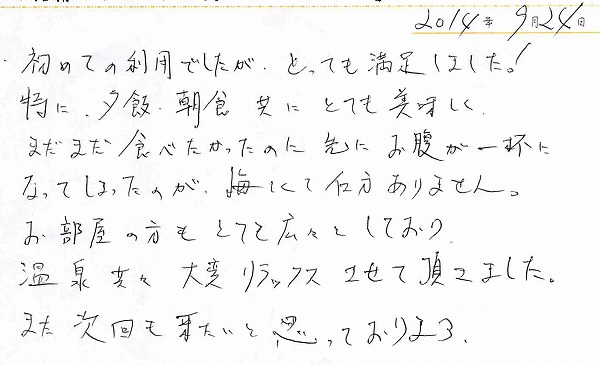 2014年 9月24日
初めての利用でしたが、とっても満足しました!
特に、夕飯、朝食 共に とても 美味しく、
まだまだ 食べたかったのに 先に お腹が 一杯に
なってしまったのが、悔しくて 仕方ありません。
お部屋の方も とても 広々と しており
温泉共々 大変 リラックス させて 頂きました。
また 次回も 来たいと 思っております。